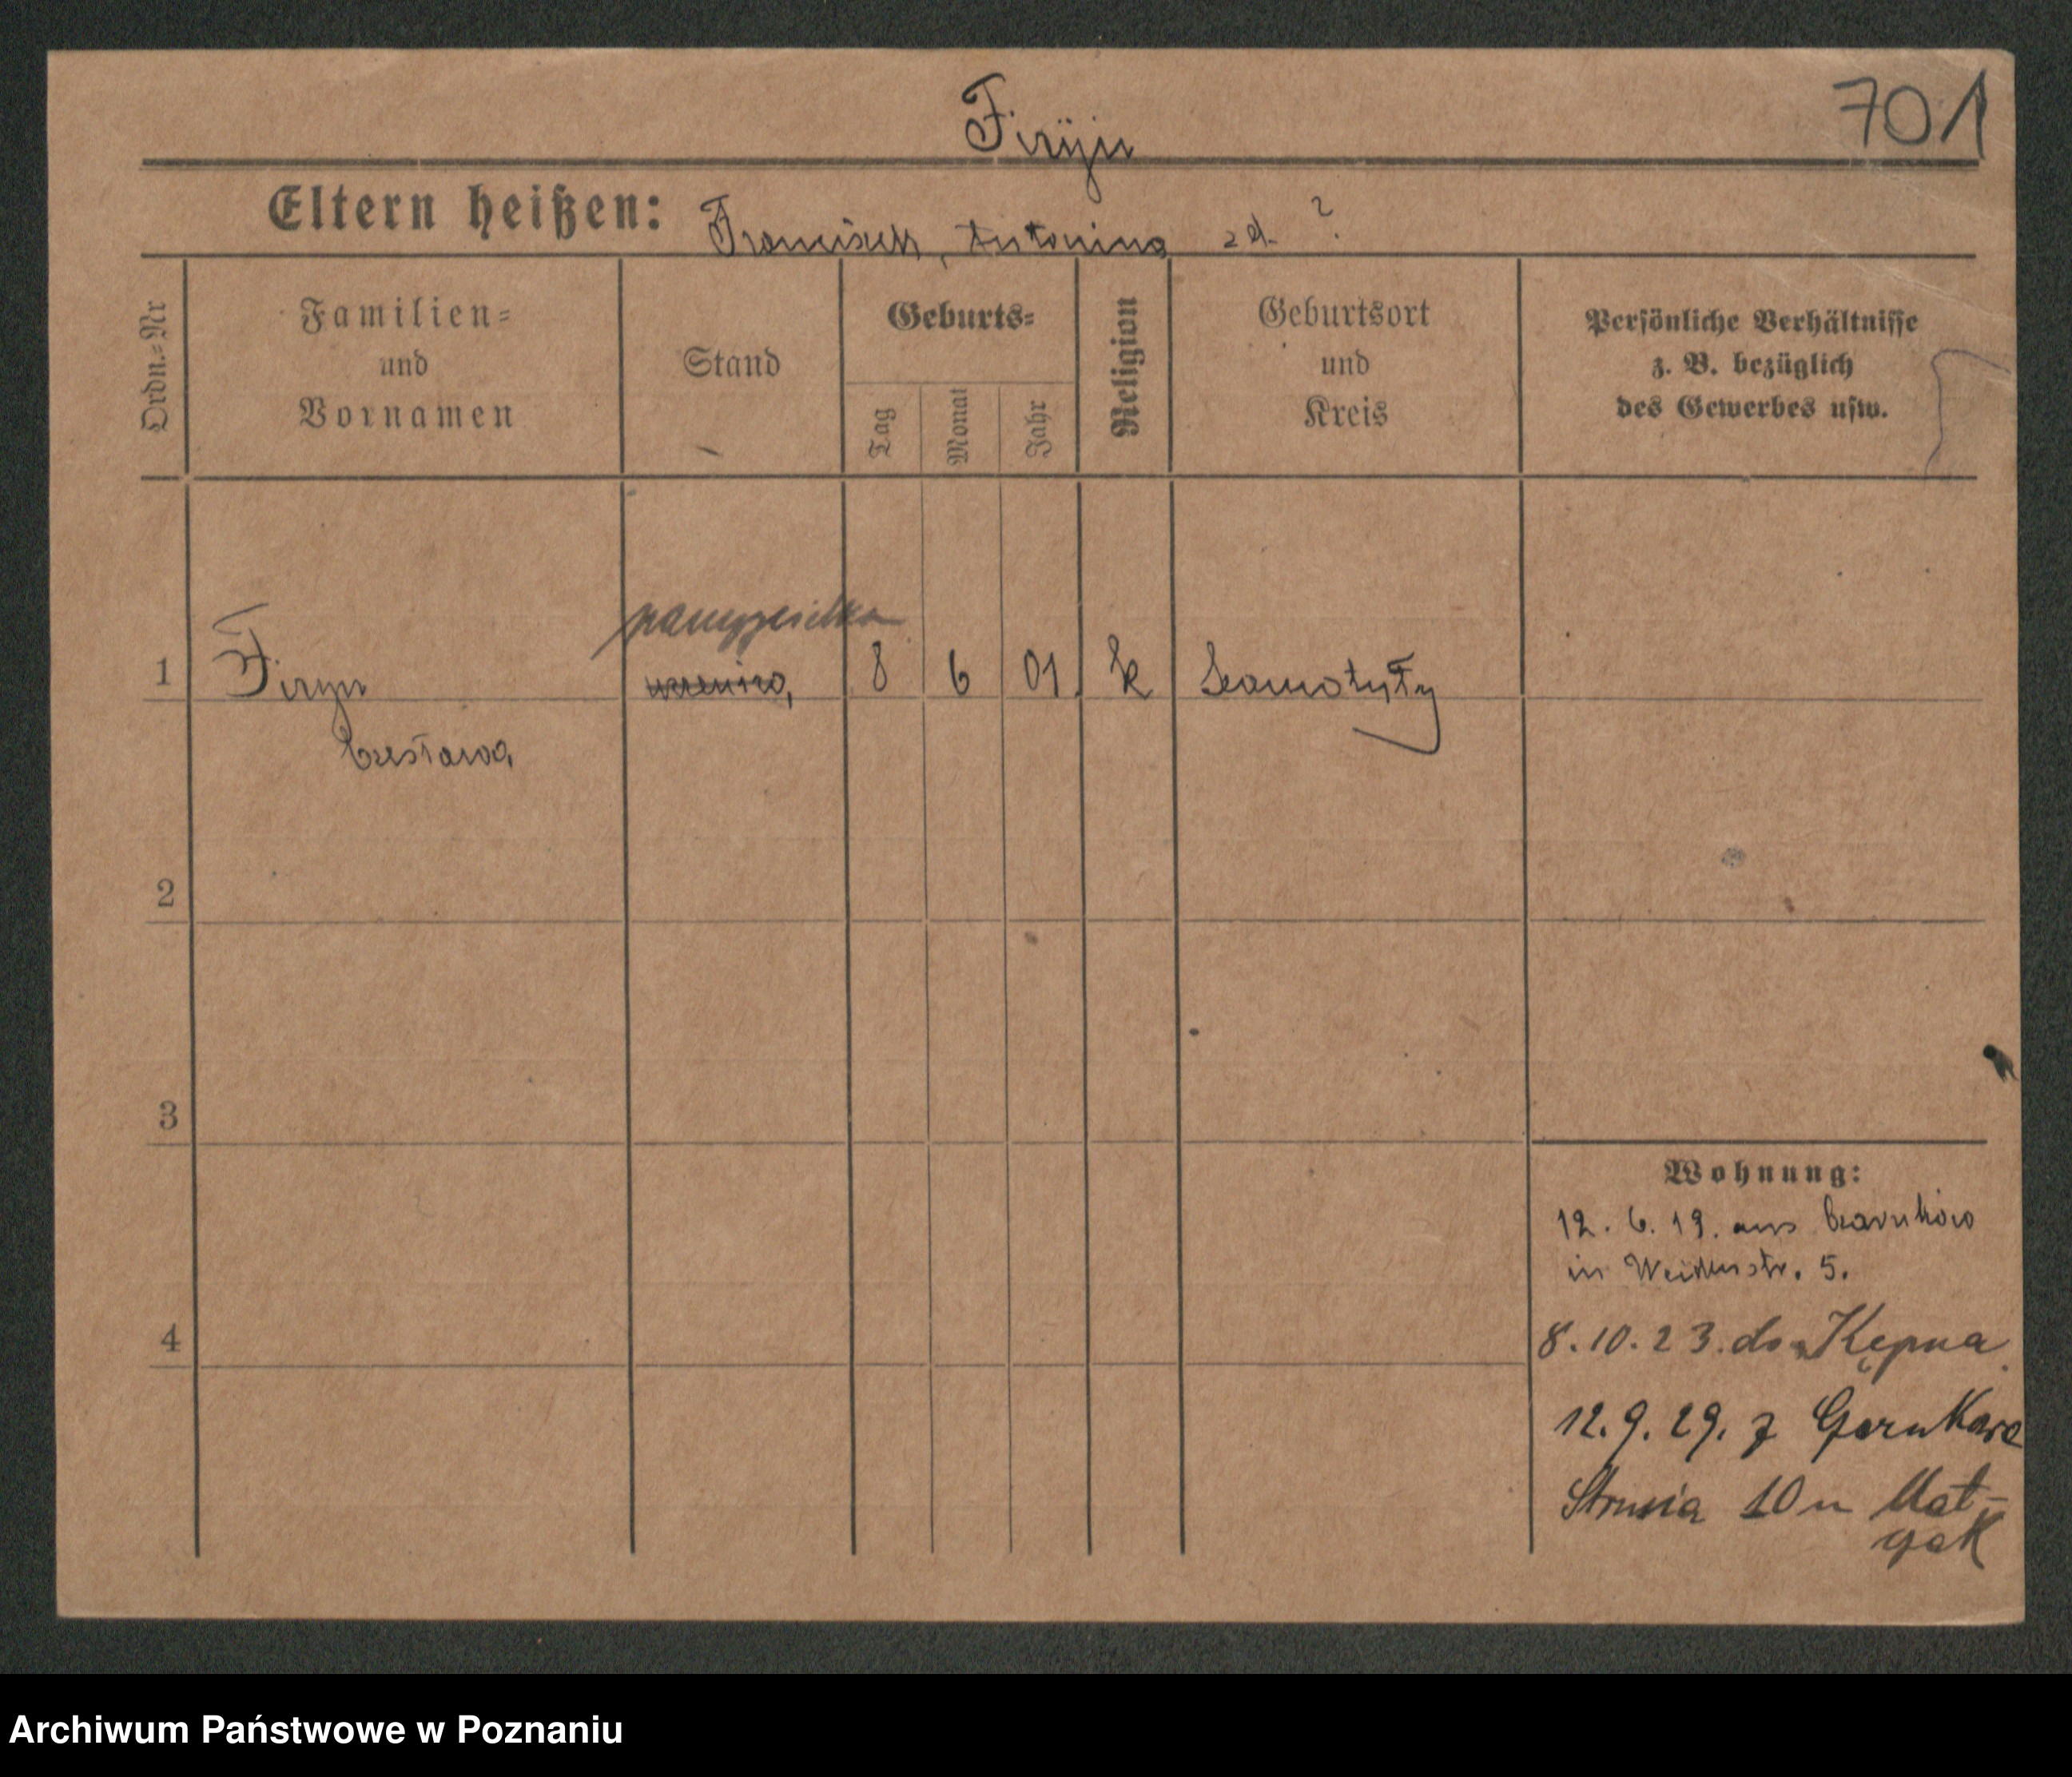 Firyn
701
Eltern heißen: Franciszek, Antonina zd. ?
Ordn.=Nr
Familien=
und
Vornamen
Stand
Geburts=
Tag
Monat
Jahr
Religion
Geburtsort
und
Kreis
Persönliche Verhältnisse
z. B. bezüglich
des Gewerbes usw.
nauczycielka
1 Firyn uczenica 8 6 01 k Szamotuły
Czesława
2
3
4
Wohnung:
12. 6. 19. aus Czarnków
in Weidenstr. 5.
8. 10. 23. do Kępna
12. 9. 29. z Czarnkowa
Strusia 10 u
Archiwum Państwowe w Poznaniu